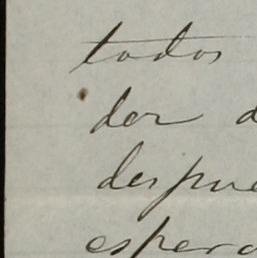 todos
dor d
despue
espera